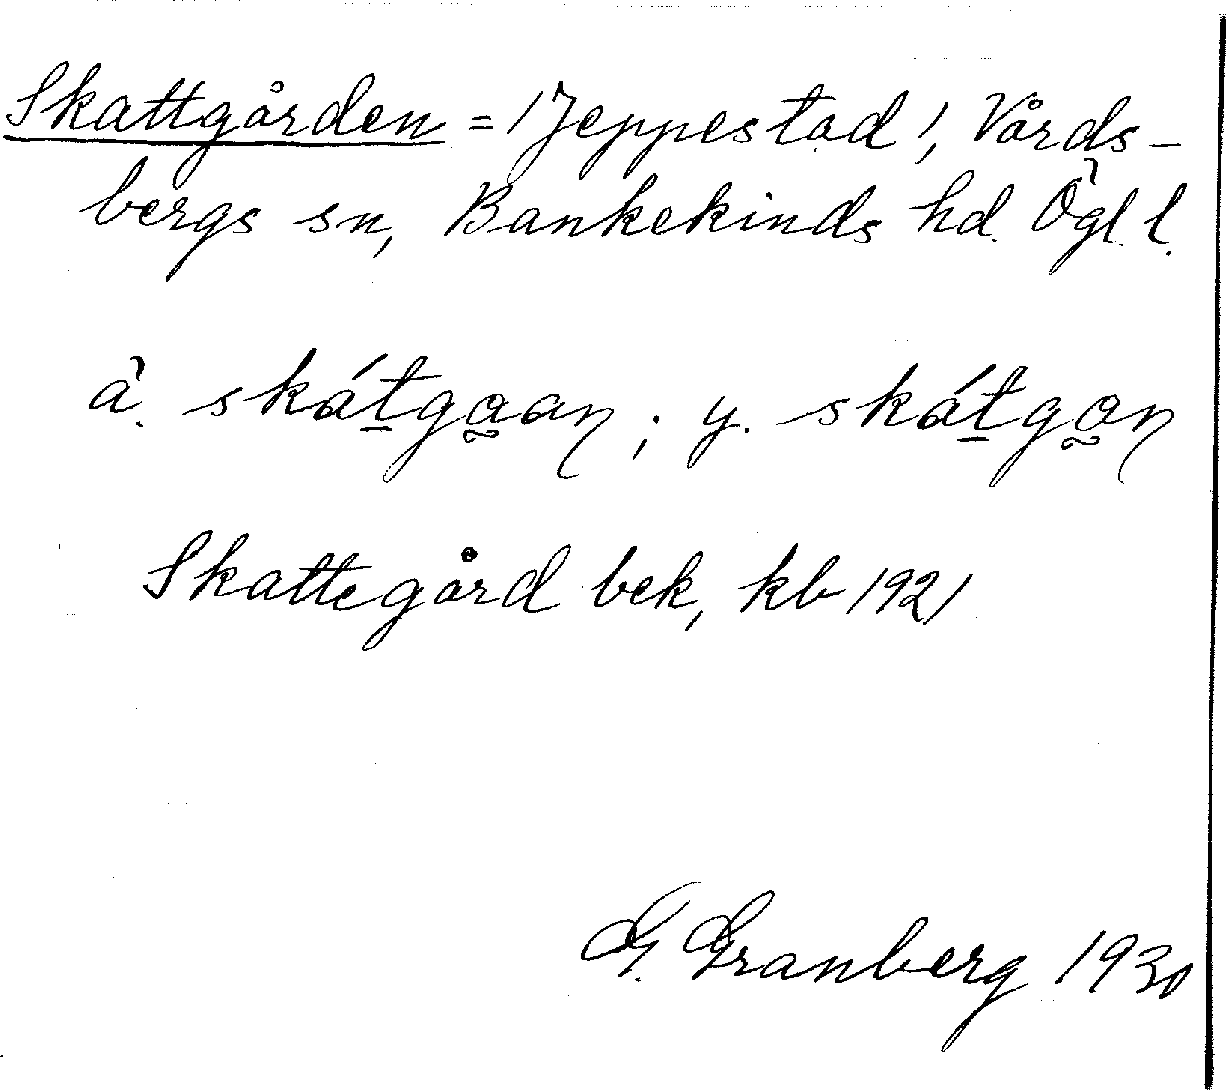 Skattgården = /Jeppestad/, Vårds-
bergs sn, Bankekinds hd. Ögl. l.
ä. skát̲ga̰an; y. skát̲ga̰n
Skattegård bek, kb 1921
G. Granberg 1930